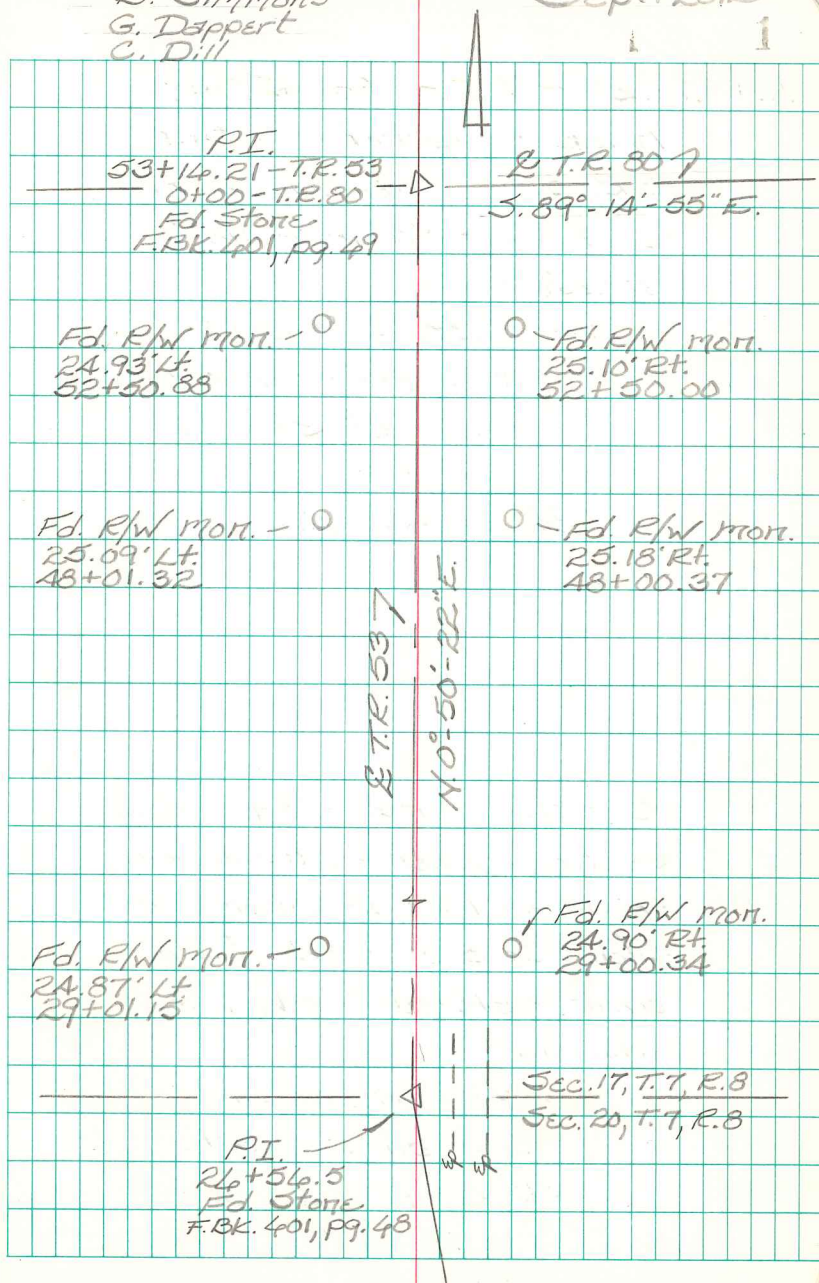 Simmons
G. Dappert
C. Dill
1
P.I.
53+16.21-T.R. 53
0+00-T.R. 80
Fd. Stone
F.BK. 401, pg. 49
℄ T.R. 80
S.89°-14'-55"E.
Fd. R/W mon.
24.93' Lt.
52+50.88
Fd. R/W mon.
25.10' Rt.
52+50.00
Fd. R/W mon.
25.09' Lt.
48+01.32
Fd. R/W mon.
25.18' Rt.
48+00.37
℄ T.R. 53
N.0°-50'-22"E.
Fd. R/W mon.
24.87' Lt.
29+01.15
Fd. R/W mon.
24.90' Rt.
29+00.34
Sec. 17, T.7, R.8
Sec. 20, T.7, R.8
P.I.
26+56.5
Fd. Stone
F.BK. 401, pg. 48